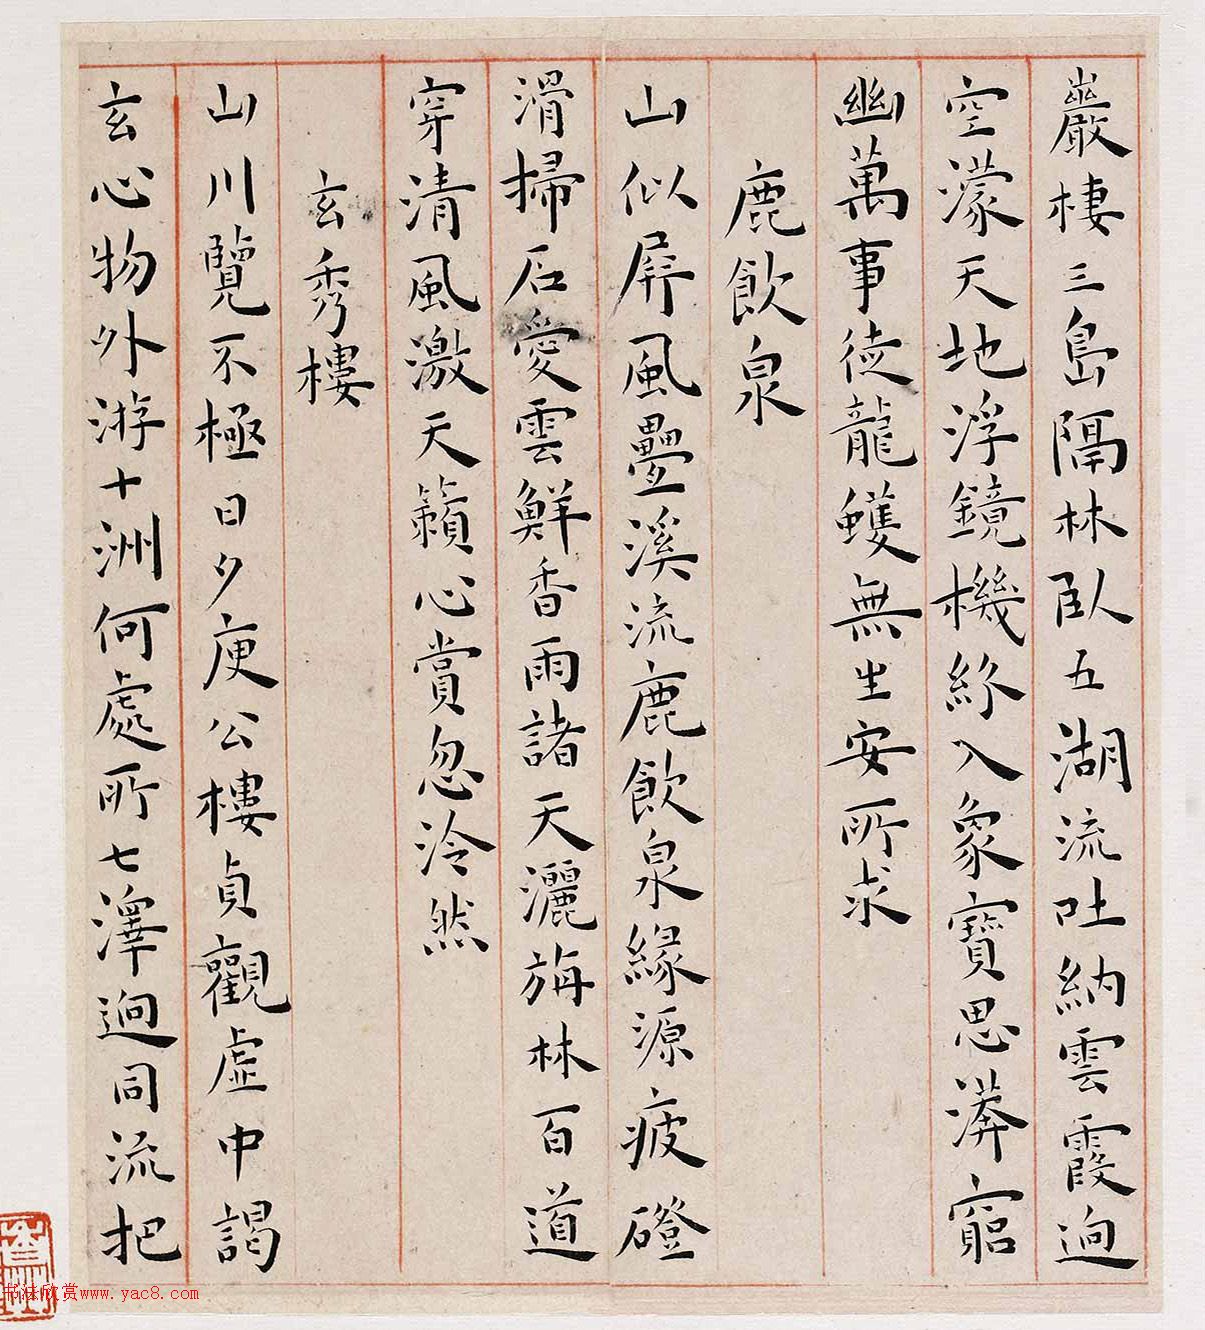 巖棲三島隔林臥五湖流吐納雲霞迥
空濛天地浮鏡機絲入象寶思漭窮
幽萬事徒龍蠖無生安所求
鹿飲泉
山似屏風疊溪流鹿飲泉緣源疲磴
滑掃石愛雲鮮香雨諸天灑旃林百道
穿清風激天籟心賞忽泠然
玄秀樓
山川覽不極日夕庾公樓貞觀虛中謁
玄心物外游十洲何處所七澤迥同流把
书法欣赏www.yac8.com